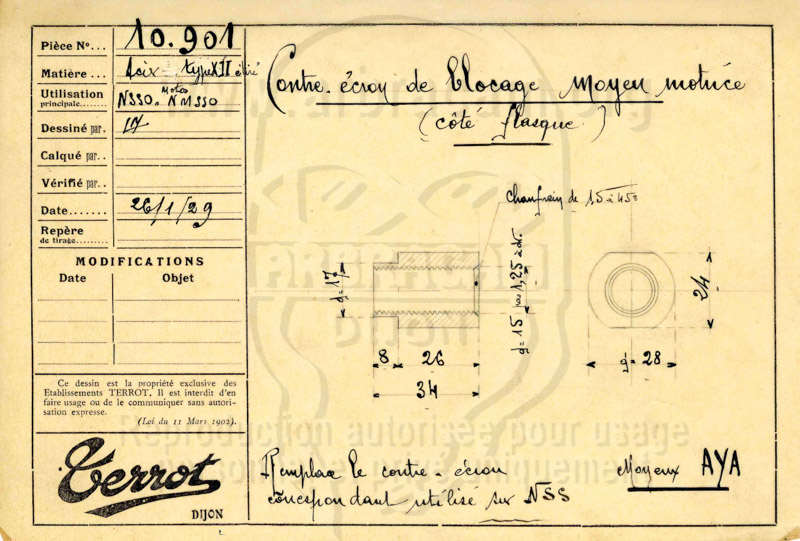 Pièce No... 10.901
Matière... Acier type XII étiré
Utilisation principale....... NSSO. Motos NMSSO
Dessiné par.
Calqué par..
Vérifié par..
Date....... 26/1/29
Repère de tirage.......
MODIFICATIONS
Date Objet
Ce dessin est la propriété exclusive des
Etablissements TERROT. Il est interdit d'en
faire usage ou de le communiquer sans autori-
sation expresse.
(Loi du 11 Mars 1902).
Terrot
DIJON
Contre-écrou de blocage moyeu motrice
(côté flasque)
Chanfrein de 1,5 à 45°
d=17
d=15 pas 1,25 à dr.
8 26
34
24
d=28
Remplace le contre-écrou
correspondant utilisé sur NSS
Moyeux AYA
Reproduction autorisée pour usage
personnel et pas uniquement